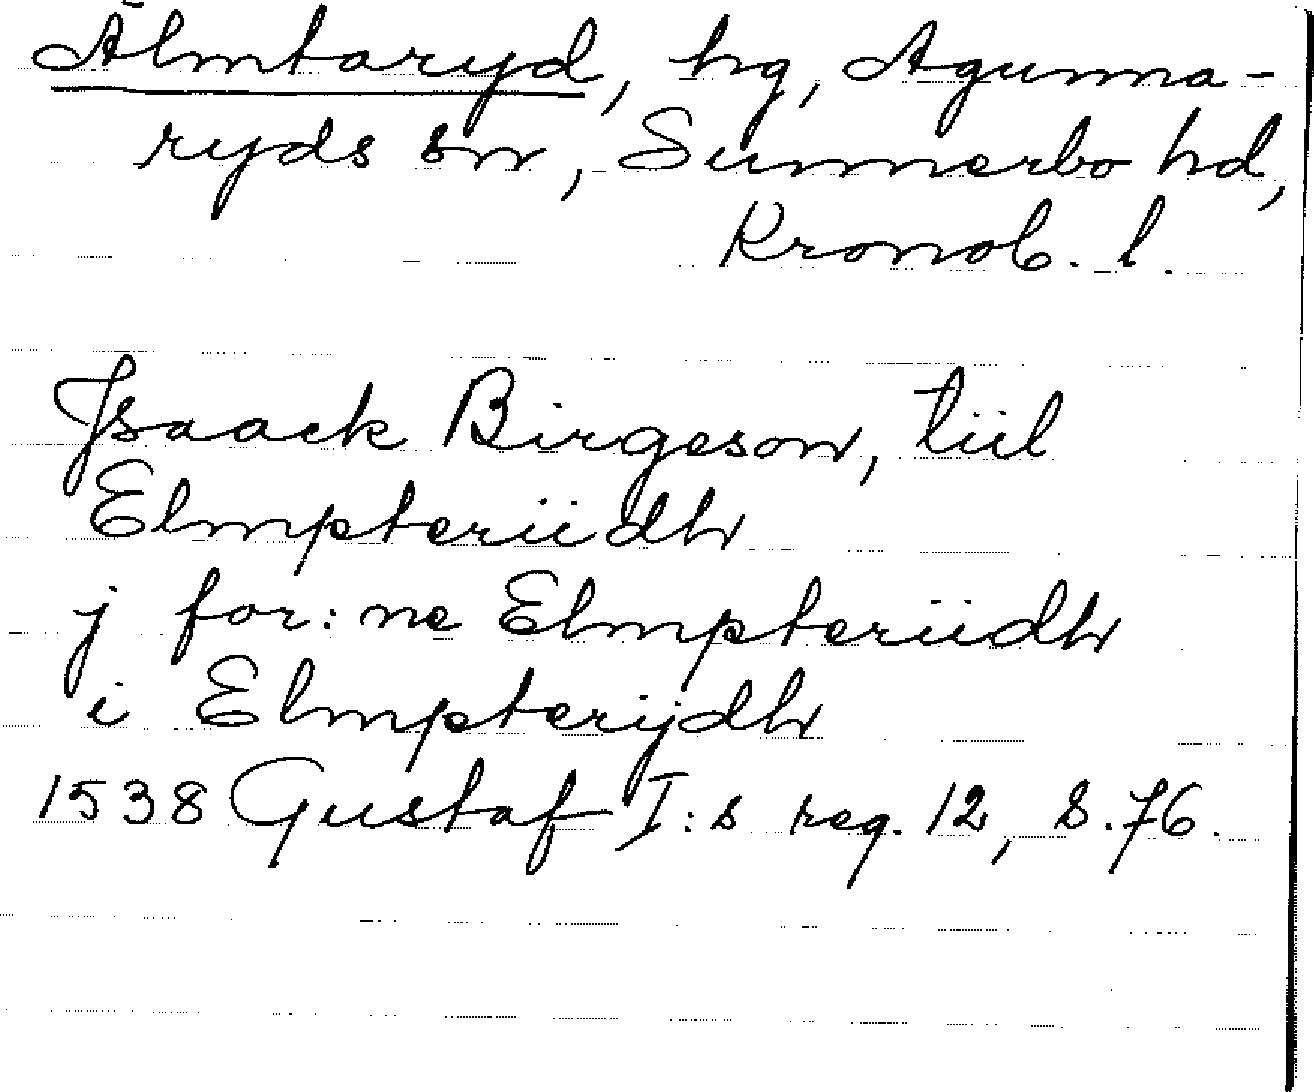 Älmtaryd, hg, Agunna-
ryds sn, Sunnerbo hd,
Kronob. l.
Jsaack Birgeson, tiil
Elmpteriidh
j for:ne Elmpteriidh
i Elmpterijdh
1538 Gustaf I:s reg. 12, s. 76.